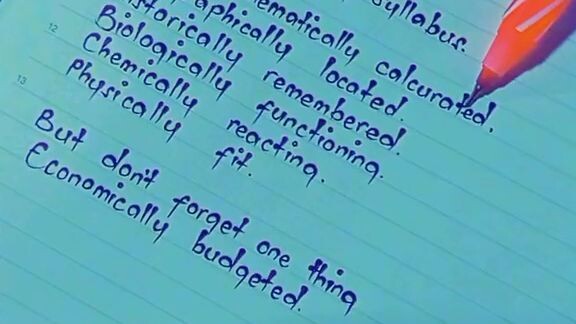 syllabus.
ematically calcurated.
aphically located.
storically remembered.
12
Biologically functioning.
Chemically reacting.
13
physically fit.
But don't forget one thing
Economically budgeted.